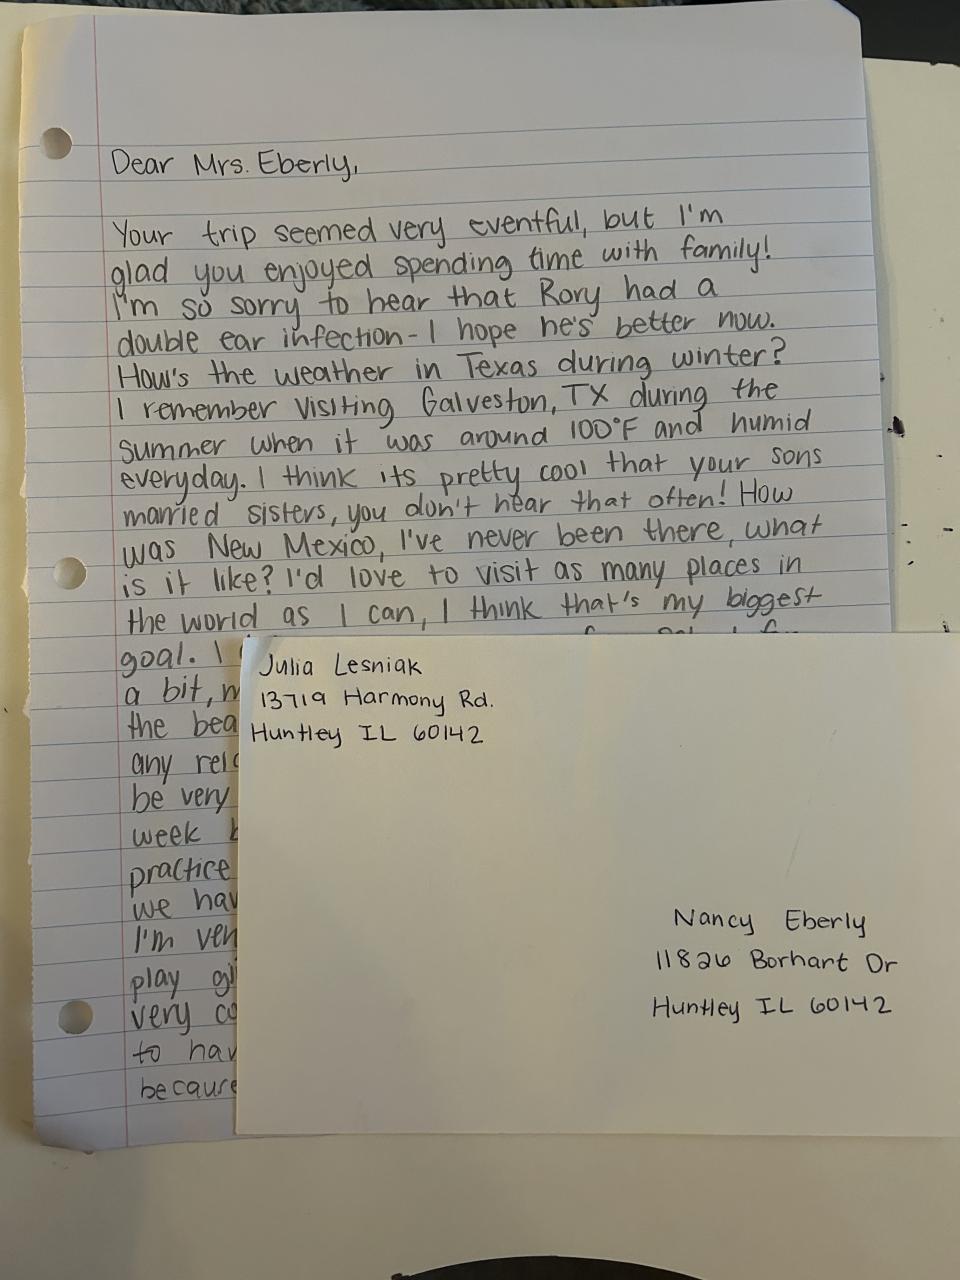 Dear Mrs. Eberly,
Your trip seemed very eventful, but I'm
glad you enjoyed spending time with family!
I'm so sorry to hear that Rory had a
double ear infection- I hope he's better now.
How's the weather in Texas during winter?
I remember visiting Galveston, TX during the
summer when it was around 100°F and humid
everyday. I think its pretty cool that your sons
married sisters, you don't hear that often! How
was New Mexico, I've never been there, what
is it like? I'd love to visit as many places in
the world as I can, I think that's my biggest
goal. I
a bit,
the bea
any rela
be very
week b
practice
we hav
I'm ver
play gi
very co
to hav
because
Julia Lesniak
13719 Harmony Rd.
Huntley IL 60142
Nancy Eberly
11826 Borhart Dr
Huntley IL 60142